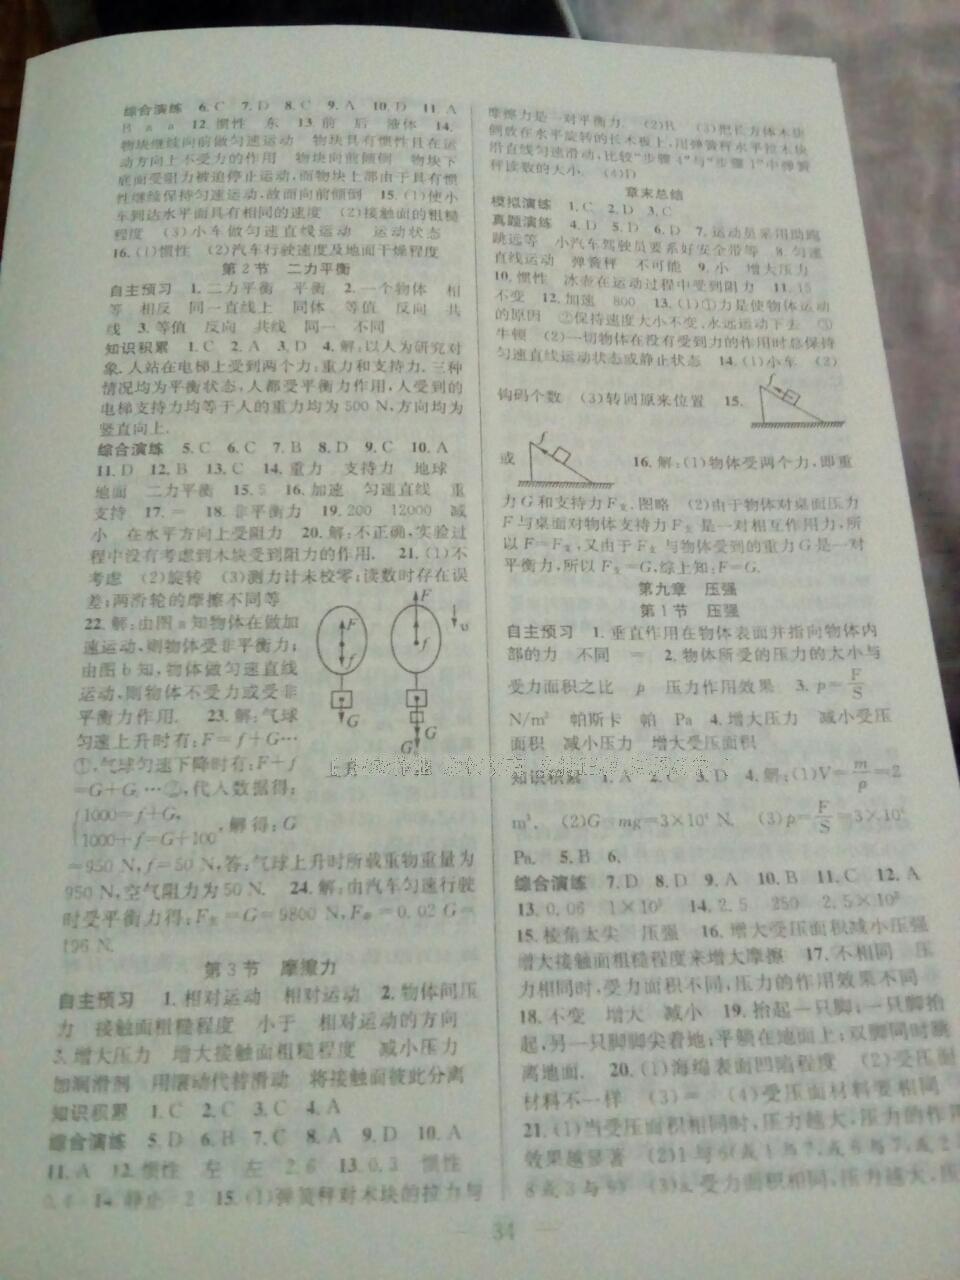 综合演练 6.C 7.D 8.C 9.A 10.D 11.A
B a a 12.惯性 东 13.前 后 液体 14.
物块继续向前做匀速运动 物块具有惯性且在运
动方向上不受力的作用 物块向前倾倒 物块下
底面受阻力被迫停止运动,而物块上部由于具有惯
性继续保持匀速运动,故而向前倾倒 15.(1)使小
车到达水平面具有相同的速度 (2)接触面的粗糙
程度 (3)小车做匀速直线运动 运动状态
16.(1)惯性 (2)汽车行驶速度及地面干燥程度
第2节 二力平衡
自主预习 1.二力平衡 平衡 2.一个物体 相
等 相反 同一直线上 同体 等值 反向 共
线 3.等值 反向 共线 同一 不同
知识积累 1.C 2.A 3.D 4.解:以人为研究对
象.人站在电梯上受到两个力:重力和支持力.三种
情况均为平衡状态,人都受平衡力作用,人受到的
电梯支持力均等于人的重力均为500 N,方向均为
竖直向上.
综合演练 5.C 6.C 7.B 8.D 9.C 10.A
11.D 12.B 13.C 14.重力 支持力 地球
地面 二力平衡 15.5 16.加速 匀速直线 重
支持 17.= 18.非平衡力 19.200 12000 减
小 在水平方向上受阻力 20.解:不正确,实验过
程中没有考虑到木块受到阻力的作用. 21.(1)不
考虑 (2)旋转 (3)测力计未校零;读数时存在误
差;两滑轮的摩擦不同等
22.解:由图a知物体在做加
速运动,则物体受非平衡力;
由图b知,物体做匀速直线
运动,则物体不受力或受非
平衡力作用. 23.解:气球
匀速上升时有:F=f+G…
①,气球匀速下降时有:F+f
=G+G,…②,代人数据得:
1000=f+G,
1000+f=G+100
,解得:G
=950 N,f=50 N,答:气球上升时所载重物重量为
950 N,空气阻力为50 N. 24.解:由汽车匀速行驶
时受平衡力得:F支=G=9800 N,F牵=0.02 G=
196 N.
第3节 摩擦力
自主预习 1.相对运动 相对运动 2.物体间压
力 接触面粗糙程度 小于 相对运动的方向
3.增大压力 增大接触面粗糙程度 减小压力
加润滑剂 用滚动代替滑动 将接触面彼此分离
知识积累 1.C 2.C 3.C 4.A
综合演练 5.D 6.B 7.C 8.A 9.D 10.A
11.A 12.惯性 左 左 2.6 13.0.3 惯性
0.4 14.静止 2 15.(1)弹簧秤对木块的拉力与
F
f
G
F
f
v
G
G
摩擦力是一对平衡力. (2)B (3)把长方体木块
侧放在水平旋转的长木板上,用弹簧秤水平拉木块
沿直线匀速滑动,比较“步骤4”与“步骤1”中弹簧
秤读数的大小. (4)D
章末总结
模拟演练 1.C 2.D 3.C
真题演练 4.D 5.D 6.D 7.运动员采用助跑
跳远等 小汽车驾驶员要系好安全带等 8.匀速
直线运动 弹簧秤 不可能 9.小 增大压力
10.惯性 冰壶在运动过程中受到阻力 11.15
不变 12.加速 800 13.(1)①力是使物体运动
的原因 ②保持速度大小不变,永远运动下去 ③
牛顿 (2)一切物体在没有受到力的作用时总保持
匀速直线运动状态或静止状态 14.(1)小车 (2)
钩码个数 (3)转回原来位置 15.
f
或
f
16.解:(1)物体受两个力,即重
力G和支持力F支.图略 (2)由于物体对桌面压力
F与桌面对物体支持力F支是一对相互作用力,所
以F=F支,又由于F支与物体受到的重力G是一对
平衡力,所以F支=G,综上知:F=G.
第九章 压强
第1节 压强
自主预习 1.垂直作用在物体表面并指向物体内
部的力 不同 = 2.物体所受的压力的大小与
受力面积之比 p 压力作用效果 3.p=F/S
N/m² 帕斯卡 帕 Pa 4.增大压力 减小受压
面积 减小压力 增大受压面积
知识积累 1.A 2.C 3.D 4.解:(1)V=m/ρ=2
m³. (2)G=mg=3×10⁴ N. (3)p=F/S=3×10⁴
Pa. 5.B 6.
综合演练 7.D 8.D 9.A 10.B 11.C 12.A
13.0.06 1×10³ 14.2.5 250 2.5×10³
15.棱角太尖 压强 16.增大受压面积减小压强
增大接触面粗糙程度来增大摩擦 17.不相同 压
力相同时,受力面积不同,压力的作用效果不同
18.不变 增大 减小 19.抬起一只脚;一只脚抬
起,另一只脚脚尖着地;平躺在地面上;双脚同时跳
离地面. 20.(1)海绵表面凹陷程度 (2)受压面
材料不一样 (3)= (4)受压面材料要相同
21.(1)当受压面积相同时,压力越大,压力的作用
效果越显著 (2)1与6(或1与7,或6与7,或2
8或3与9) (3)a.受力面积相同,压力越大,压
34